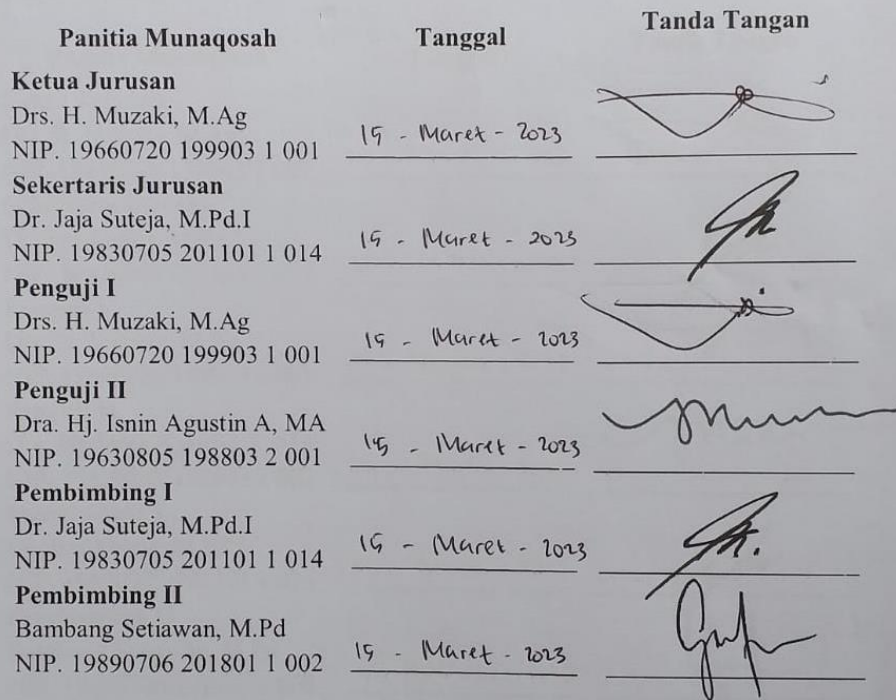 Panitia Munaqosah Tanggal Tanda Tangan
Ketua Jurusan
Drs. H. Muzaki, M.Ag
NIP. 19660720 199903 1 001 15 - Maret - 2023
Sekertaris Jurusan
Dr. Jaja Suteja, M.Pd.I
NIP. 19830705 201101 1 014 15 - Maret - 2023
Penguji I
Drs. H. Muzaki, M.Ag
NIP. 19660720 199903 1 001 15 - Maret - 2023
Penguji II
Dra. Hj. Isnin Agustin A, MA
NIP. 19630805 198803 2 001 15 - Maret - 2023
Pembimbing I
Dr. Jaja Suteja, M.Pd.I
NIP. 19830705 201101 1 014 15 - Maret - 2023
Pembimbing II
Bambang Setiawan, M.Pd
NIP. 19890706 201801 1 002 15 - Maret - 2023